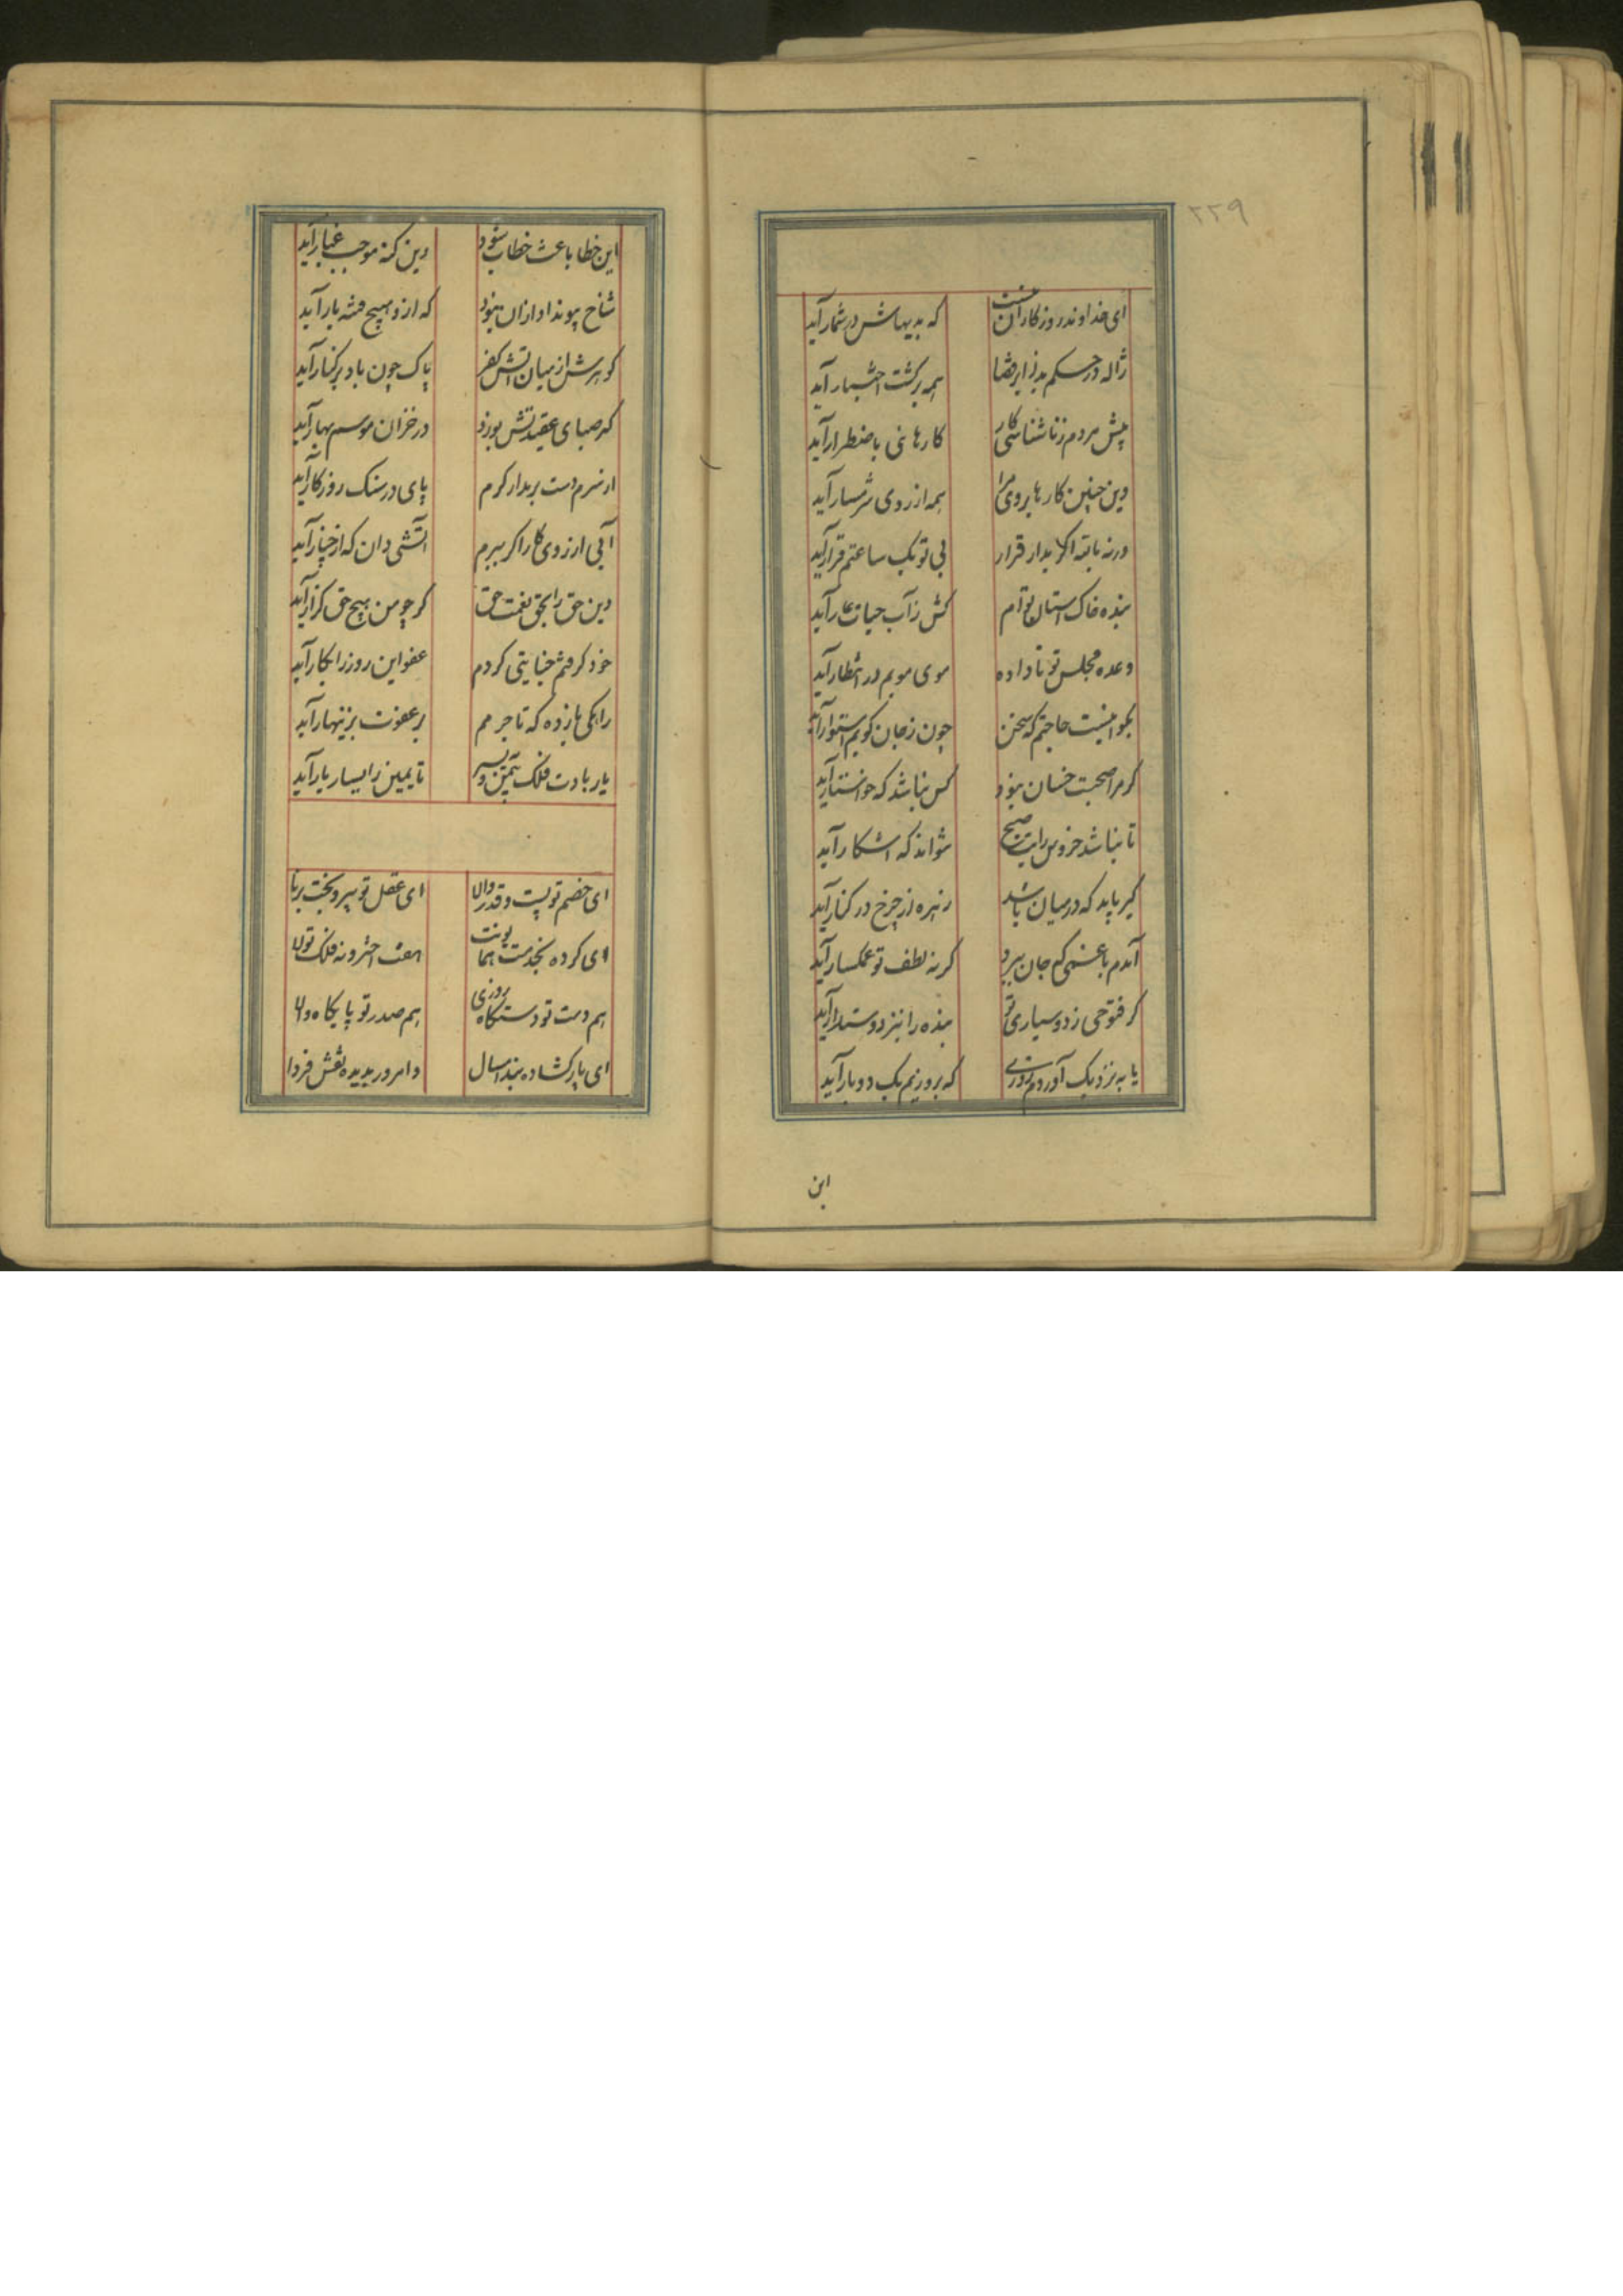 ۲۲۹
ای خداوند روزکار آن نیست
که به بیهاش در شمار آید
ژاله در حسکم بد ز ابر قضا
همه بر کشت اختیار آید
پیش مردم ز ناشناسی کار
کارهائی باضطرار آید
وین چنین کارها بروی مرا
همه از روی شرمسار آید
ورنه باللّه اکر بدار قرار
بی تو یک ساعتم قرار آید
بنده خاک آستان توام
کش ز آب حیات عار آید
وعده مجلس تو تا داده
موی مویم در انتظار آید
بکو نیست حاجتم که سخن
چون ز جان کویم استوار آید
کر مرا صحبت خسان نبود
کس نباشد که خواستار آید
تا نباشد خروس رایت صبح
نتواند که اشکار آید
کیر باید که در میان باشد
زهره از چرخ در کنار آید
آمدم با غمی که جان ببرد
کر نه لطف تو غمکسار آید
کر فتوحی ز دوسیاری تو
بنده را نیز دوستدار آید
یا به نزدیک آوردم روزی
که بروزیم یک دو بار آید
این
این خطا باعث خطاب شود
وین کنه موجب غبار آید
شاخ پیوند او ازان نبود
که ازو هیچ فتنه بار آید
کوهرش از میان اتش کفر
پاک چون باد بر کنار آید
که صبای عقیدتش بوزد
در خزان موسم بهار آید
از سرم دست بر مدار کرم
پای در سنک روزکار آید
آبی از روی کار اکر ببرم
اتشی دان که از خیار آید
وین حق را بحق نعمت حق
کر چو من هیچ حق کزار آید
خود کرفتم خیانتی کردم
عفو این روز را بکار آید
راهکی بازده که تا جرمم
بر عفوت بزینهار آید
یار بادت فلک بیمین و یسیر
تا یمین را یسار یار آید
ای خصم تو پست و قدر والا
ای عقل تو پیر و بخت برنا
ای کرده بخدمت همایونت
هفت اختر و نه فلک تولا
هم دست تو دستکاه روزی
هم صدر تو پایکاه والا
ای پار کشاده بند امسال
وامروز بدیده نقش فردا